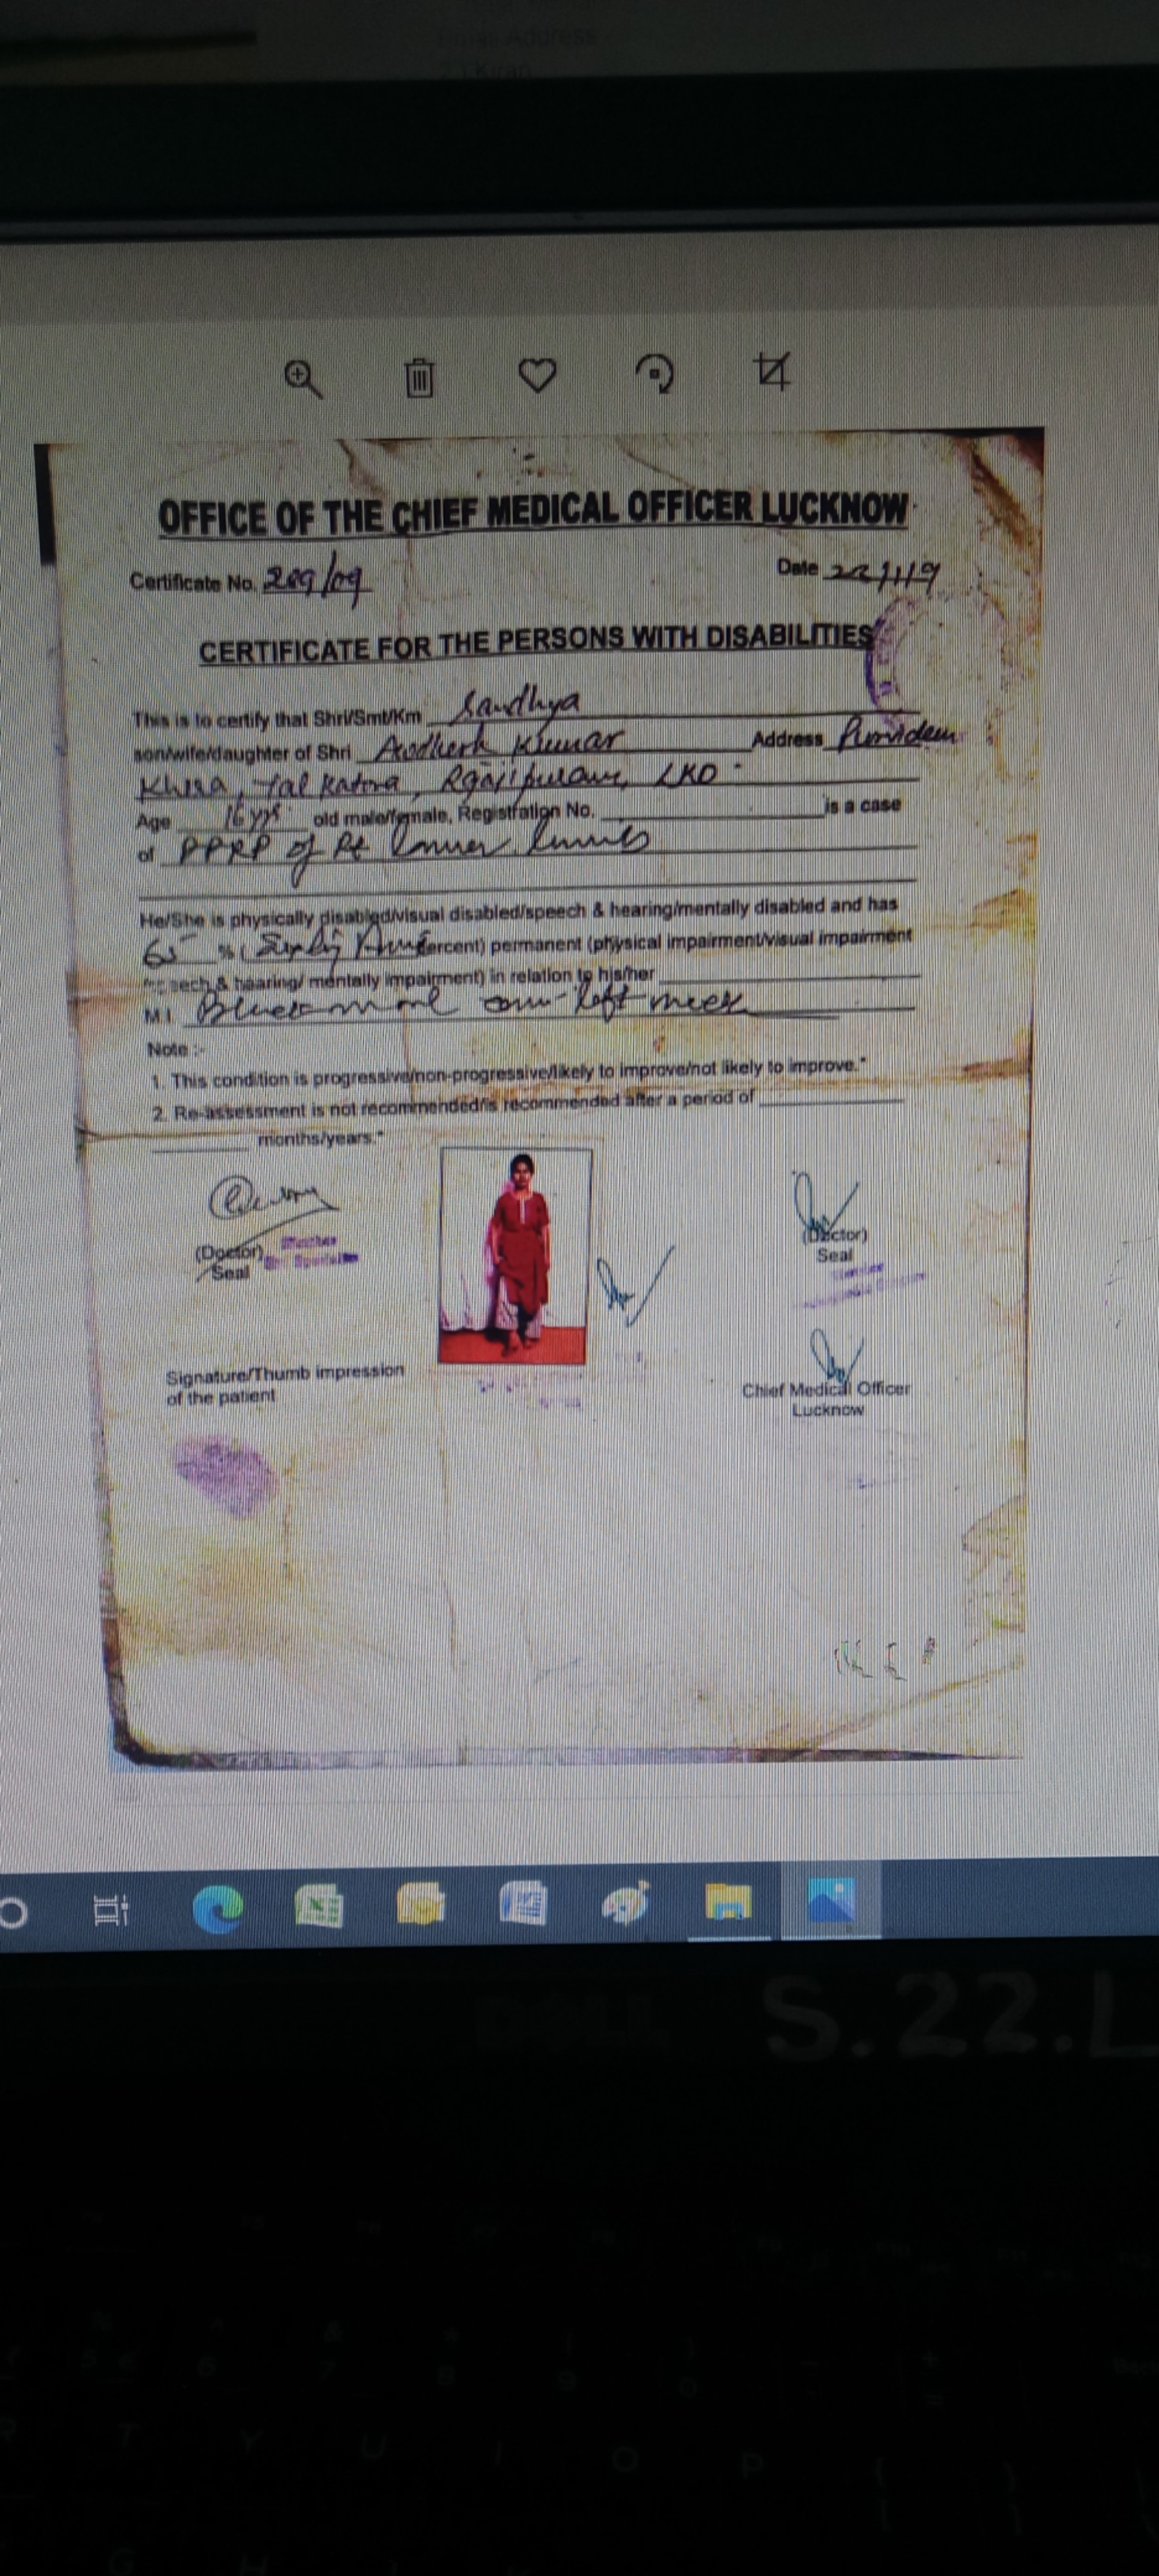 Address
OFFICE OF THE CHIEF MEDICAL OFFICER LUCKNOW
Certificate No. 209/09 Date 22/1/19
CERTIFICATE FOR THE PERSONS WITH DISABILITIES
This is to certify that Shri/Smt/Km Sandhya
son/wife/daughter of Shri Awdhesh Kumar Address
Tal Katora, LKO
Age 16 yrs old male/female, Registration No. is a case
of PPRP of Rt
He/She is physically disabled/visual disabled/speech & hearing/mentally disabled and has
65 % ( percent) permanent (physical impairment/visual impairment
& hearing/ mentally impairment) in relation to his/her
M.I. Black mole left
Note :-
1. This condition is progressive/non-progressive/likely to improve/not likely to improve.*
2. Re-assessment is not recommended/is recommended after a period of
months/years.*
(Doctor)
Seal
(Doctor)
Seal
Signature/Thumb impression
of the patient
Chief Medical Officer
Lucknow
DELL
S.22.L